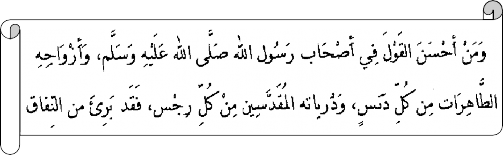 وَمَنْ أَحْسَنَ القَوْلَ فِي أَصْحَابِ رَسُولِ اللهِ صَلَّى اللهُ عَلَيْهِ وَسَلَّم، وَأَزْوَاجِهِ
الطَّاهِرَات مِن كُلِّ دَنَسٍ، وَذُرِّيَاتِهِ المُقَدَّسِين مِنْ كُلِّ رِجْسٍ، فَقَد بَرِئَ من النِّفاق